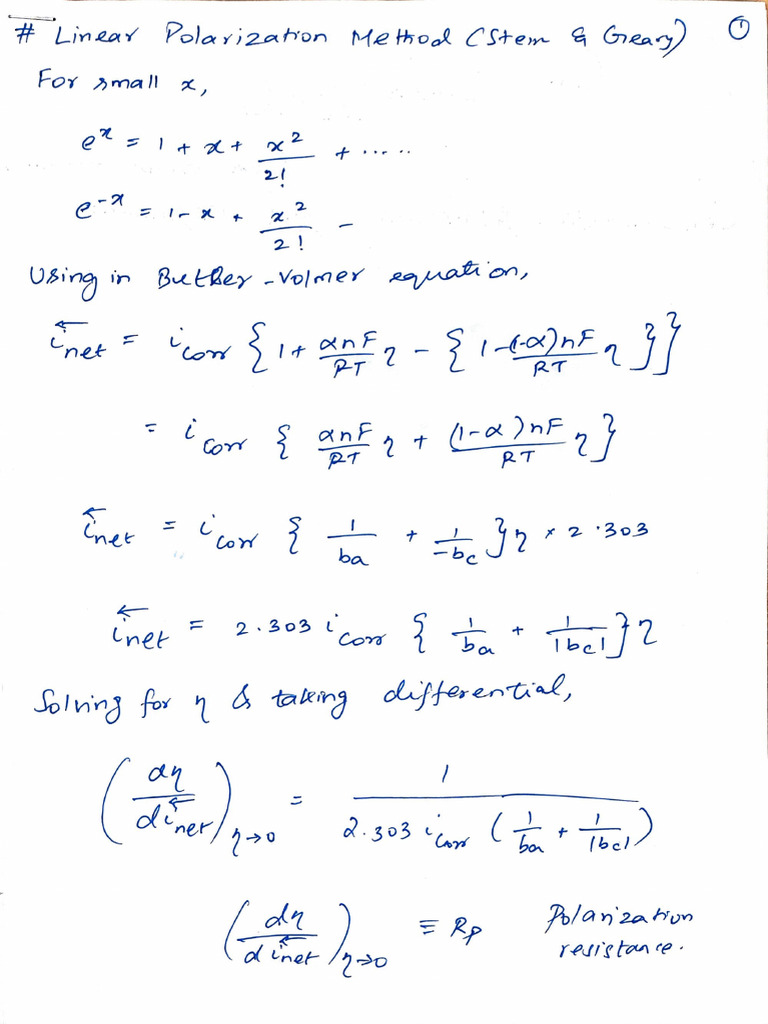 # Linear Polarization Method (Stern & Geary) ①
For small x,
e^x = 1 + x + x²/2! + .....
e^-x = 1 - x + x²/2! -
Using in Butler-Volmer equation,
i⃖net = icorr {1 + αnF/RT η - {1 - (1-α)nF/RT η}}
= icorr {αnF/RT η + (1-α)nF/RT η}
i⃖net = icorr {1/ba + 1/-bc} η × 2.303
i⃖net = 2.303 icorr {1/ba + 1/|bc|} η
Solving for η & taking differential,
(dη/di⃖net)η→0 = 1/2.303 icorr (1/ba + 1/|bc|)
(dη/di⃖net)η→0 ≡ Rp Polarization
resistance.